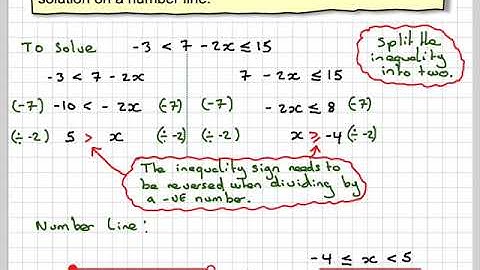 solution on a number line.
To Solve -3 < 7 - 2x ≤ 15
Split the
inequality
into two.
-3 < 7 - 2x
7 - 2x ≤ 15
(-7) -10 < - 2x (-7)
(-7) - 2x ≤ 8 (-7)
(÷ -2) 5 > x (÷ -2)
(÷ -2) x ≥ -4 (÷ -2)
The inequality sign needs to
be reversed when dividing by
a -VE number.
Number Line:
-4 ≤ x < 5